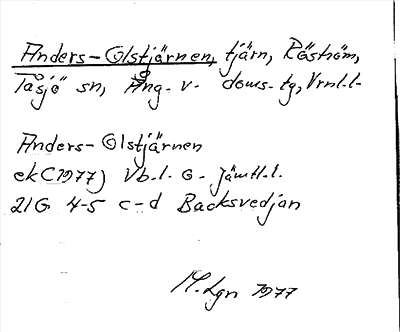 Anders-Olstjärnen, tjärn, Röström,
Tåsjö sn, Ång. v. doms.tg, Vrnl.l.
Anders-Olstjärnen
ek(1977) Vb.l. o. Jämtl.l.
21G 4-5 c-d Backsvedjan
M.Lgn 1977